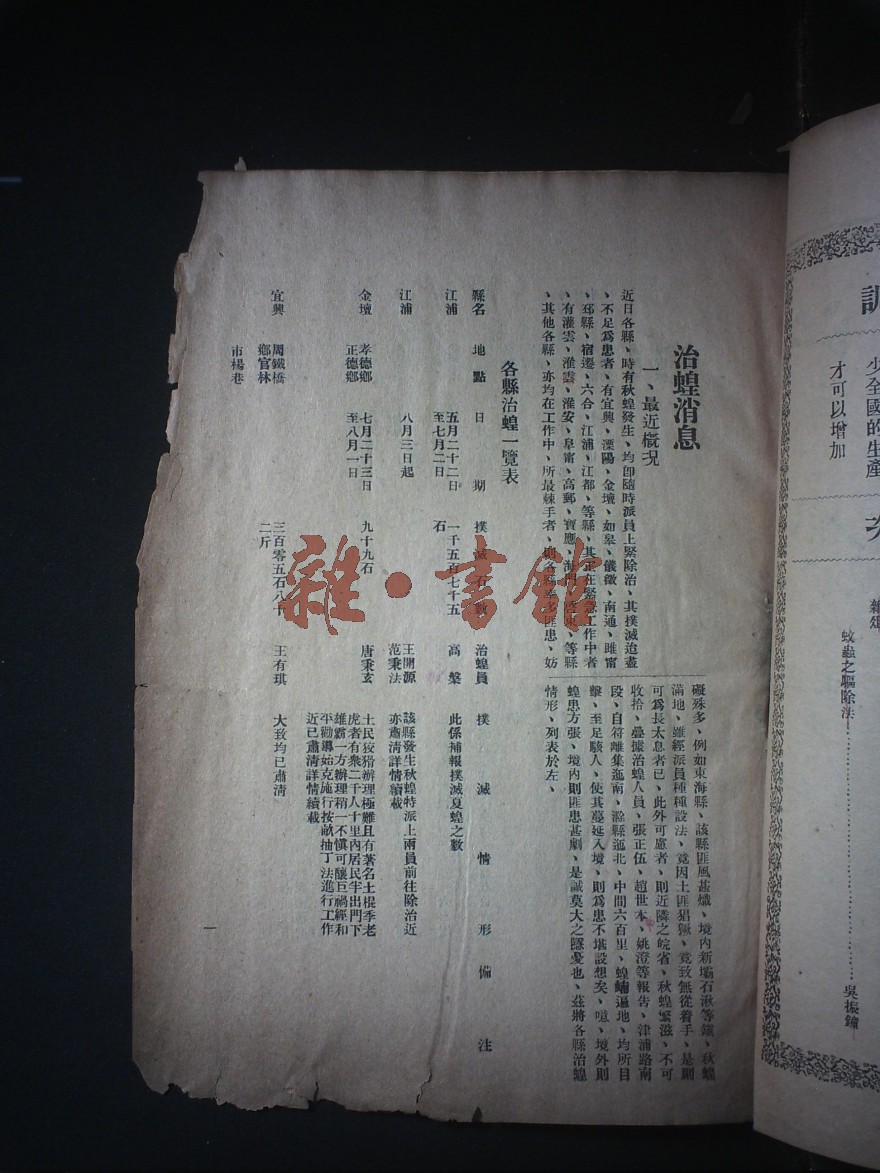 治蝗消息
一、最近概況
近日各縣、時有秋蝗發生、均卽隨時派員上緊除治、其撲滅迨盡
、不足爲患者、有宜興、溧陽、金壇、如皋、儀徵、南通、睢甯
、邳縣、宿遷、六合、江浦、江都、等縣、其正在緊急工作中者
、有灌雲、淮安、阜甯、高郵、寶應、海門、啓東、等縣
、其他各縣、亦均在工作中、所最棘手者、則各縣率多匪患、妨
礙殊多、例如東海縣、該縣匪風甚熾、境內新壩石湫等鎭、秋蝗
滿地、雖經派員種種設法、竟因土匪猖獗、竟致無從着手、是則
可爲長太息者已、此外可慮者、則近隣之皖省、秋蝗繁滋、不可
收拾、疊據治蝗人員、張正伍、趙世本、姚澄等報告、津浦路南
段、自符離集迤南、滁縣迤北、中間六百里、蝗蝻遍地、均所目
擊、至足駭人、使其蔓延入境、則爲患不堪設想矣、噫、境外則
蝗患方張、境內則匪患甚劇、是誠莫大之隱憂也、茲將各縣治蝗
情形、列表於左、
各縣治蝗一覽表
縣名 地點 日期 撲滅石數 治蝗員 撲滅情形備注
江浦 五月二十二日至七月二日 一千五百七十五石 高槃 此係補報撲滅夏蝗之數
江浦 八月三日起 王開源 范秉法 該縣發生秋蝗特派上兩員前往除治近
亦肅淸詳情續載
金壇 孝德鄉 正德鄉 七月二十三日至八月一日 九十九石 唐秉玄 土民狡猾辦理極難且有著名土棍季老
虎者有衆二千人十里內居民半出門下
雄霸一方辦理稍一不愼可釀巨禍經和
平勸導始克施行按畝抽丁法進行工作
近已肅淸詳情續載
宜興 周鐵橋
鄉官林
市楊巷 三百零五石八十二斤 王有琪 大致均已肅淸
一
雜·書館
少全國的生產
才可以增加
蚊蟲之驅除法
吳振鐘